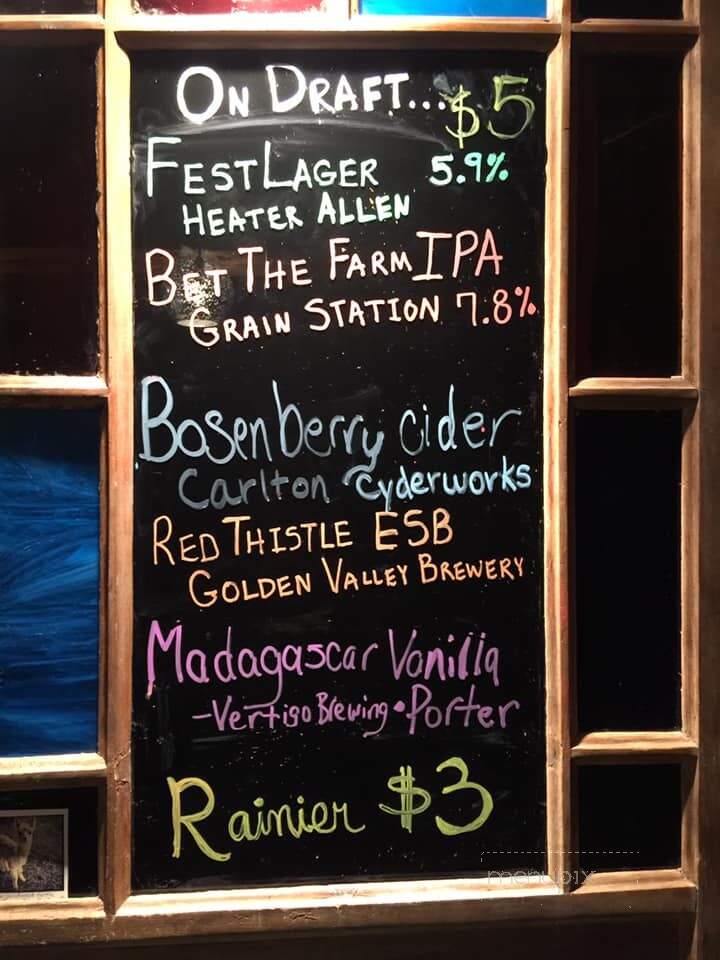 On Draft... $5
FestLager 5.9%
Heater Allen
Bet The Farm IPA
Grain Station 7.8%
Bosenberry cider
Carlton Cyderworks
Red Thistle ESB
Golden Valley Brewery
Madagascar Vanilla
-Vertigo Brewing • Porter
Rainier $3
menupix